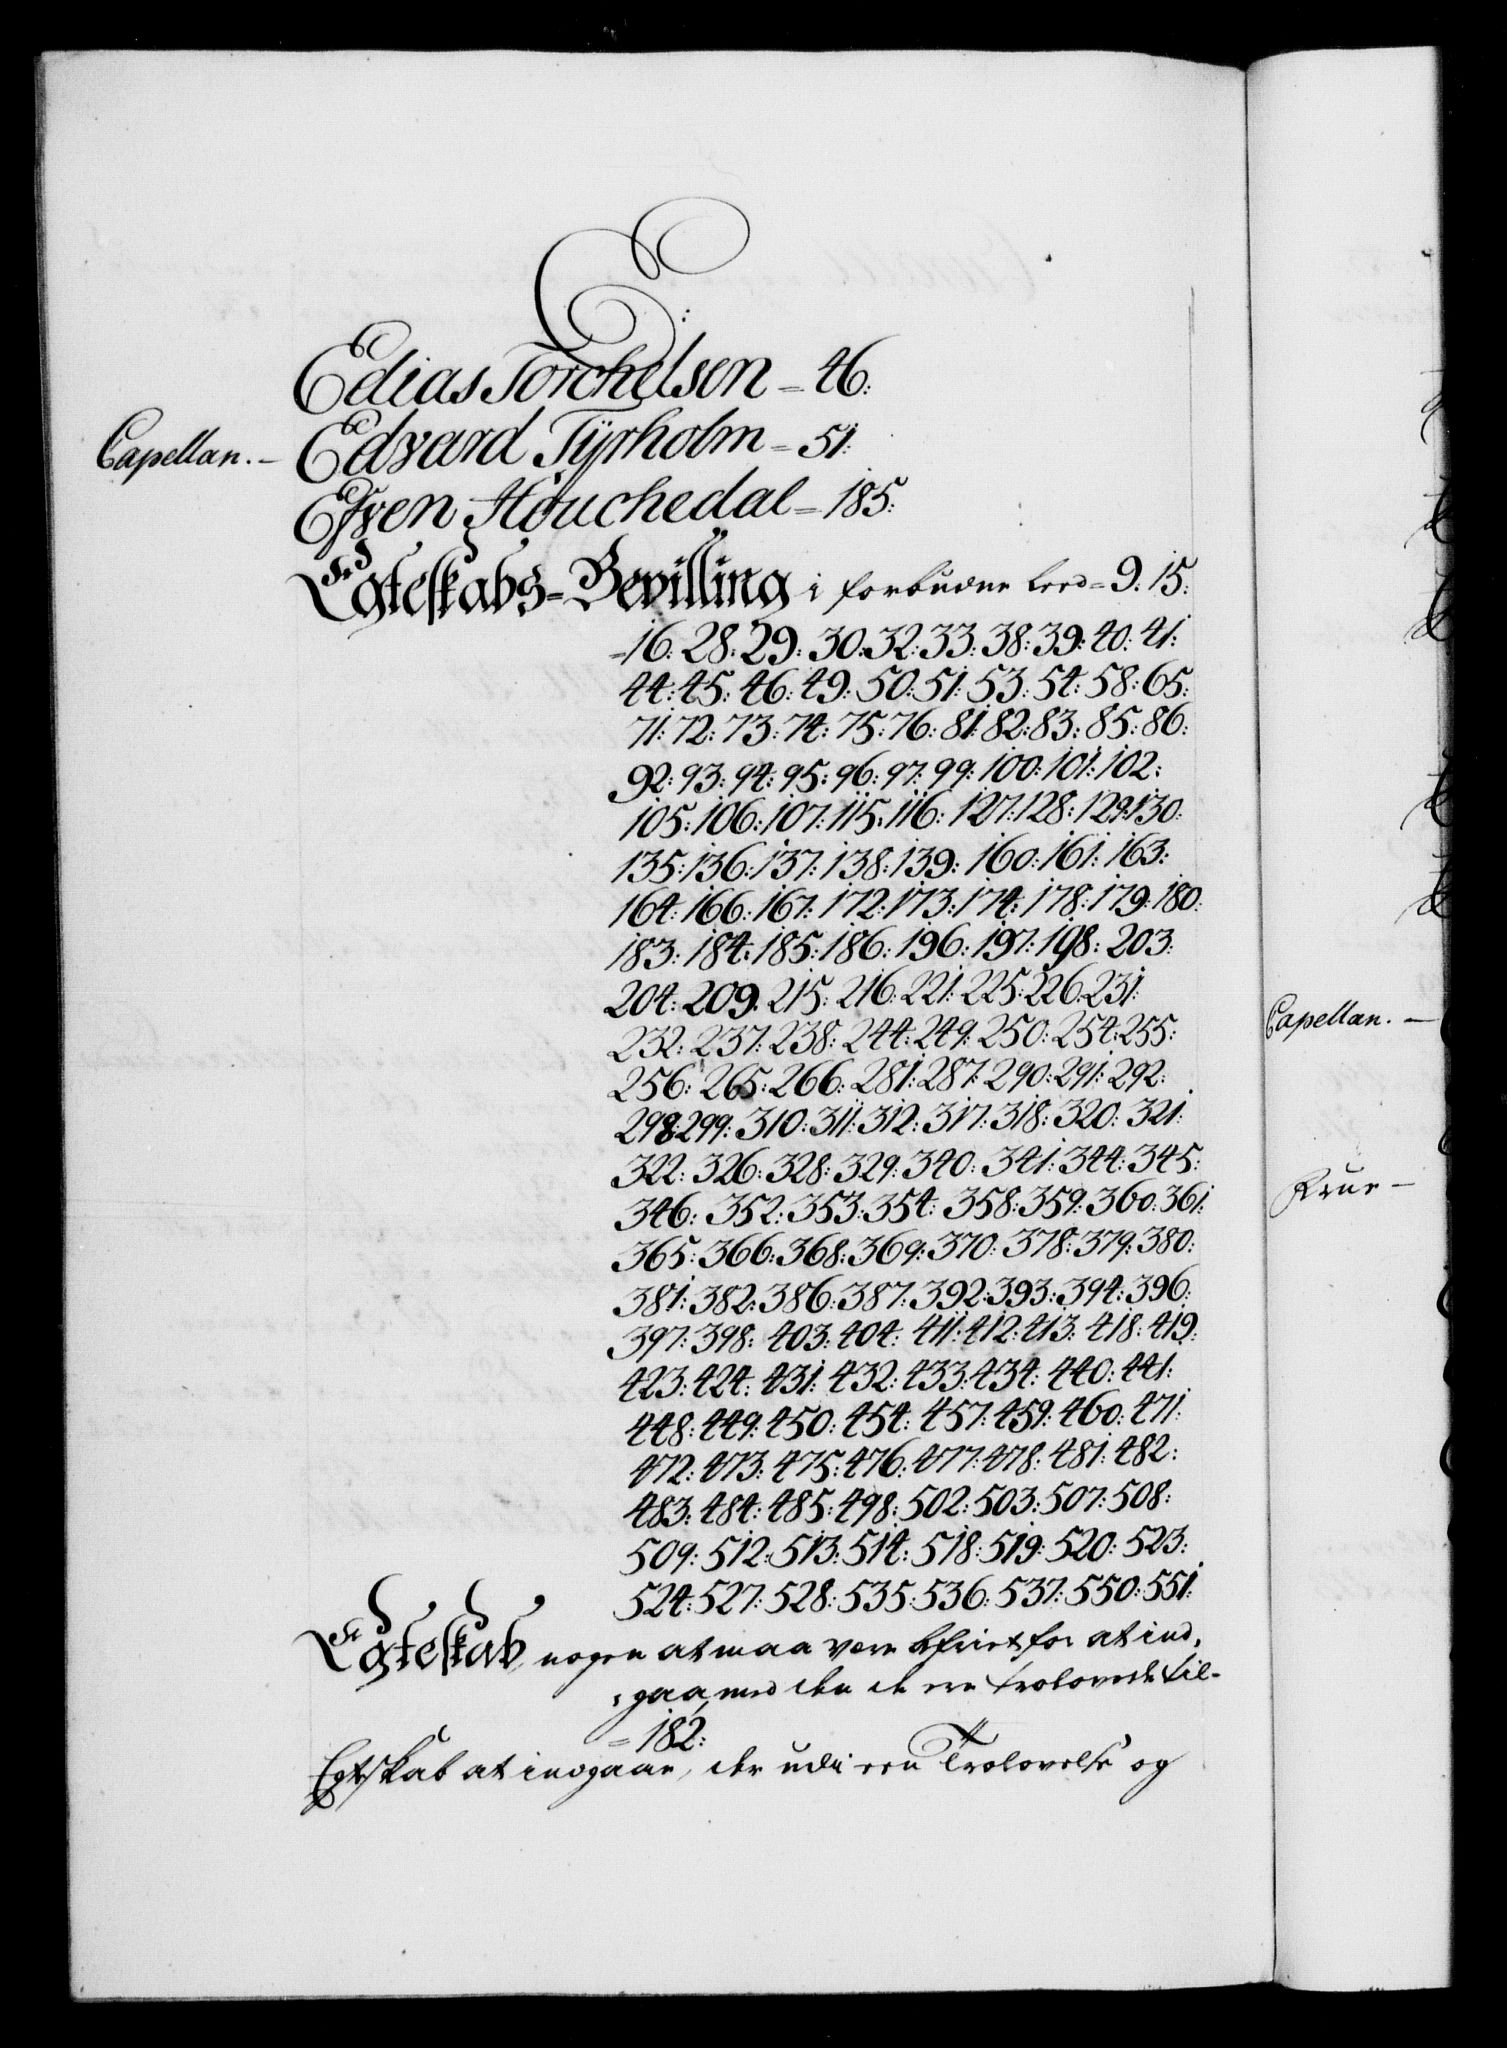 E:
Edias Torchelsen = 46:
Capellan. – Edvard Tÿrholm = 51:
Esven Houchedal = 185:
Egteskabs = Bevilling i forbudne Leed = 9: 15:
= 16: 28: 29: 30: 32: 33: 38: 39: 40: 41:
44: 45: 46: 49: 50: 51: 53: 54: 58: 65:
71: 72: 73: 74: 75: 76: 81: 82: 83: 85: 86:
92: 93: 94: 95: 96: 97: 99: 100: 101: 102:
105: 106: 107: 115: 116: 127: 128: 129: 130:
135: 136: 137: 138: 139: 160: 161: 163:
164: 166: 167: 172: 173: 174: 178: 179: 180:
183: 184: 185: 186: 196: 197: 198: 203:
204: 209: 215: 216: 221: 225: 226: 231:
232: 237: 238: 244: 249: 250: 254: 255:
256: 265: 266: 281: 287: 290: 291: 292:
298: 299: 310: 311: 312: 317: 318: 320: 321:
322: 326: 328: 329: 340: 341: 344: 345:
346: 352: 353: 354: 358: 359: 360: 361:
365: 366: 368: 369: 370: 378: 379: 380:
381: 382: 386: 387: 392: 393: 394: 396:
397: 398: 403: 404: 411: 412: 413: 418: 419:
423: 424: 431: 432: 433: 434: 440: 441:
448: 449: 450: 454: 457: 459: 460: 471:
472: 473: 475: 476: 477: 478: 481: 482:
483: 484: 485: 498: 502: 503: 507: 508:
509: 512: 513: 514: 518: 519: 520: 523:
524: 527: 528: 535: 536: 537: 550: 551:
Egteskab, nogen at maa være befriet for at ind=
=gaa, med den de ere trolovede til=
= 182:
Egteskab at indgaae, der udi een Trolovelse og
Capellan. –
Krue –